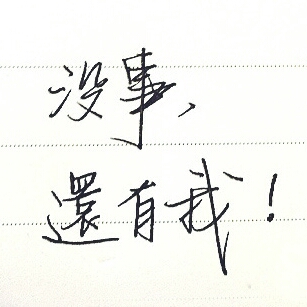 没事、
還有我！